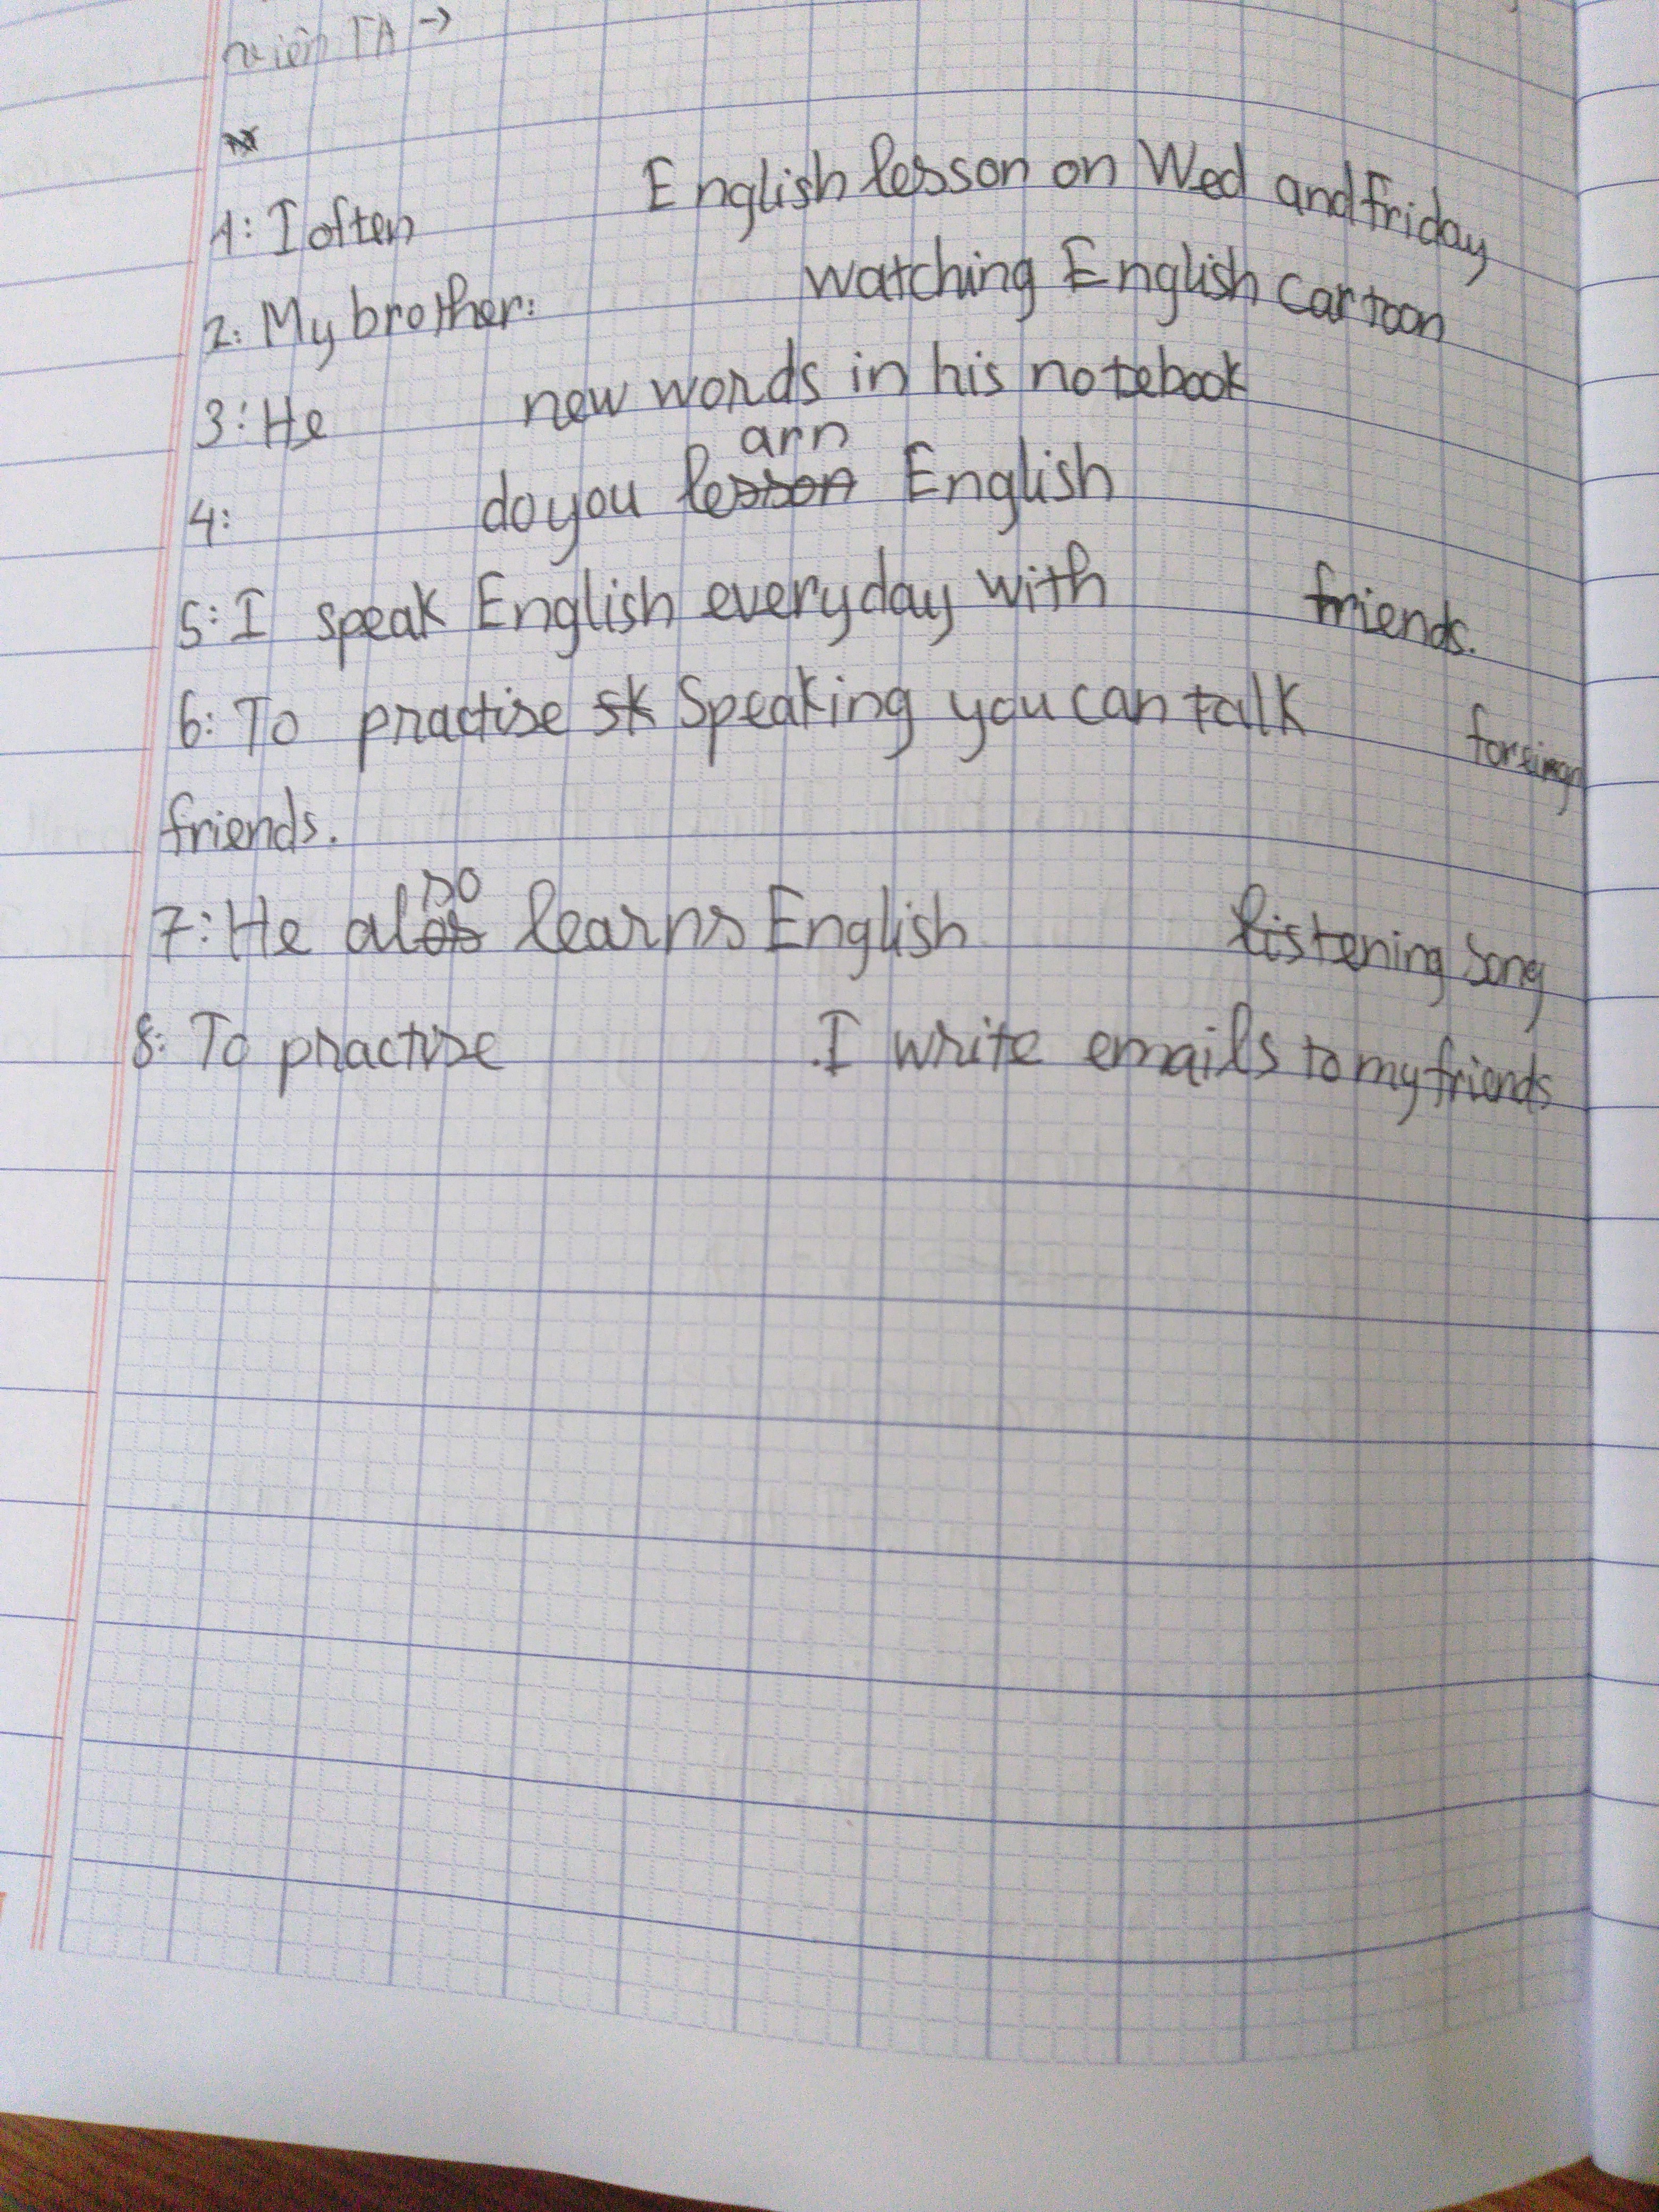 viên TA →
1: I often English lesson on Wed and friday
2: My brother: watching English cartoon
3: He new words in his notebook
arn
4: do you lesson English
5: I speak English everyday with friends.
6: To practise sk Speaking you can talk
friends.
so
7: He alos learns English listening song
8: To practise I write emails to my friends